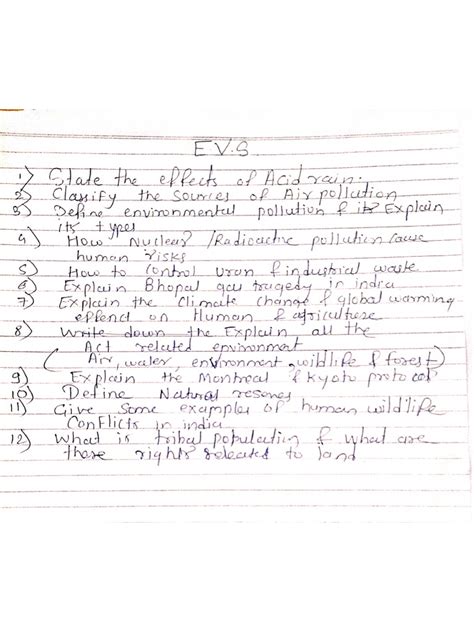 E V.S
1) State the effects of Acid rain.
2) Classify the sources of Air pollution
3) Define environmental pollution & its Explain
its types
4) How Nuclear /Radioactive pollution cause
human risks
5) How to control urban & industrial waste
6) Explain Bhopal gas tragedy in india
7) Explain the Climate change & global warming
effend on Human & agriculture
8) Write down the Explain all the
Act related environment
(Air, water, environment, wildlife & forest)
9) Explain the Montreal & Kyoto protocol
10) Define Natural reserves
11) Give Some examples of human wildlife
Conflicts in india
12) What is tribal population & what are
there rights related to land